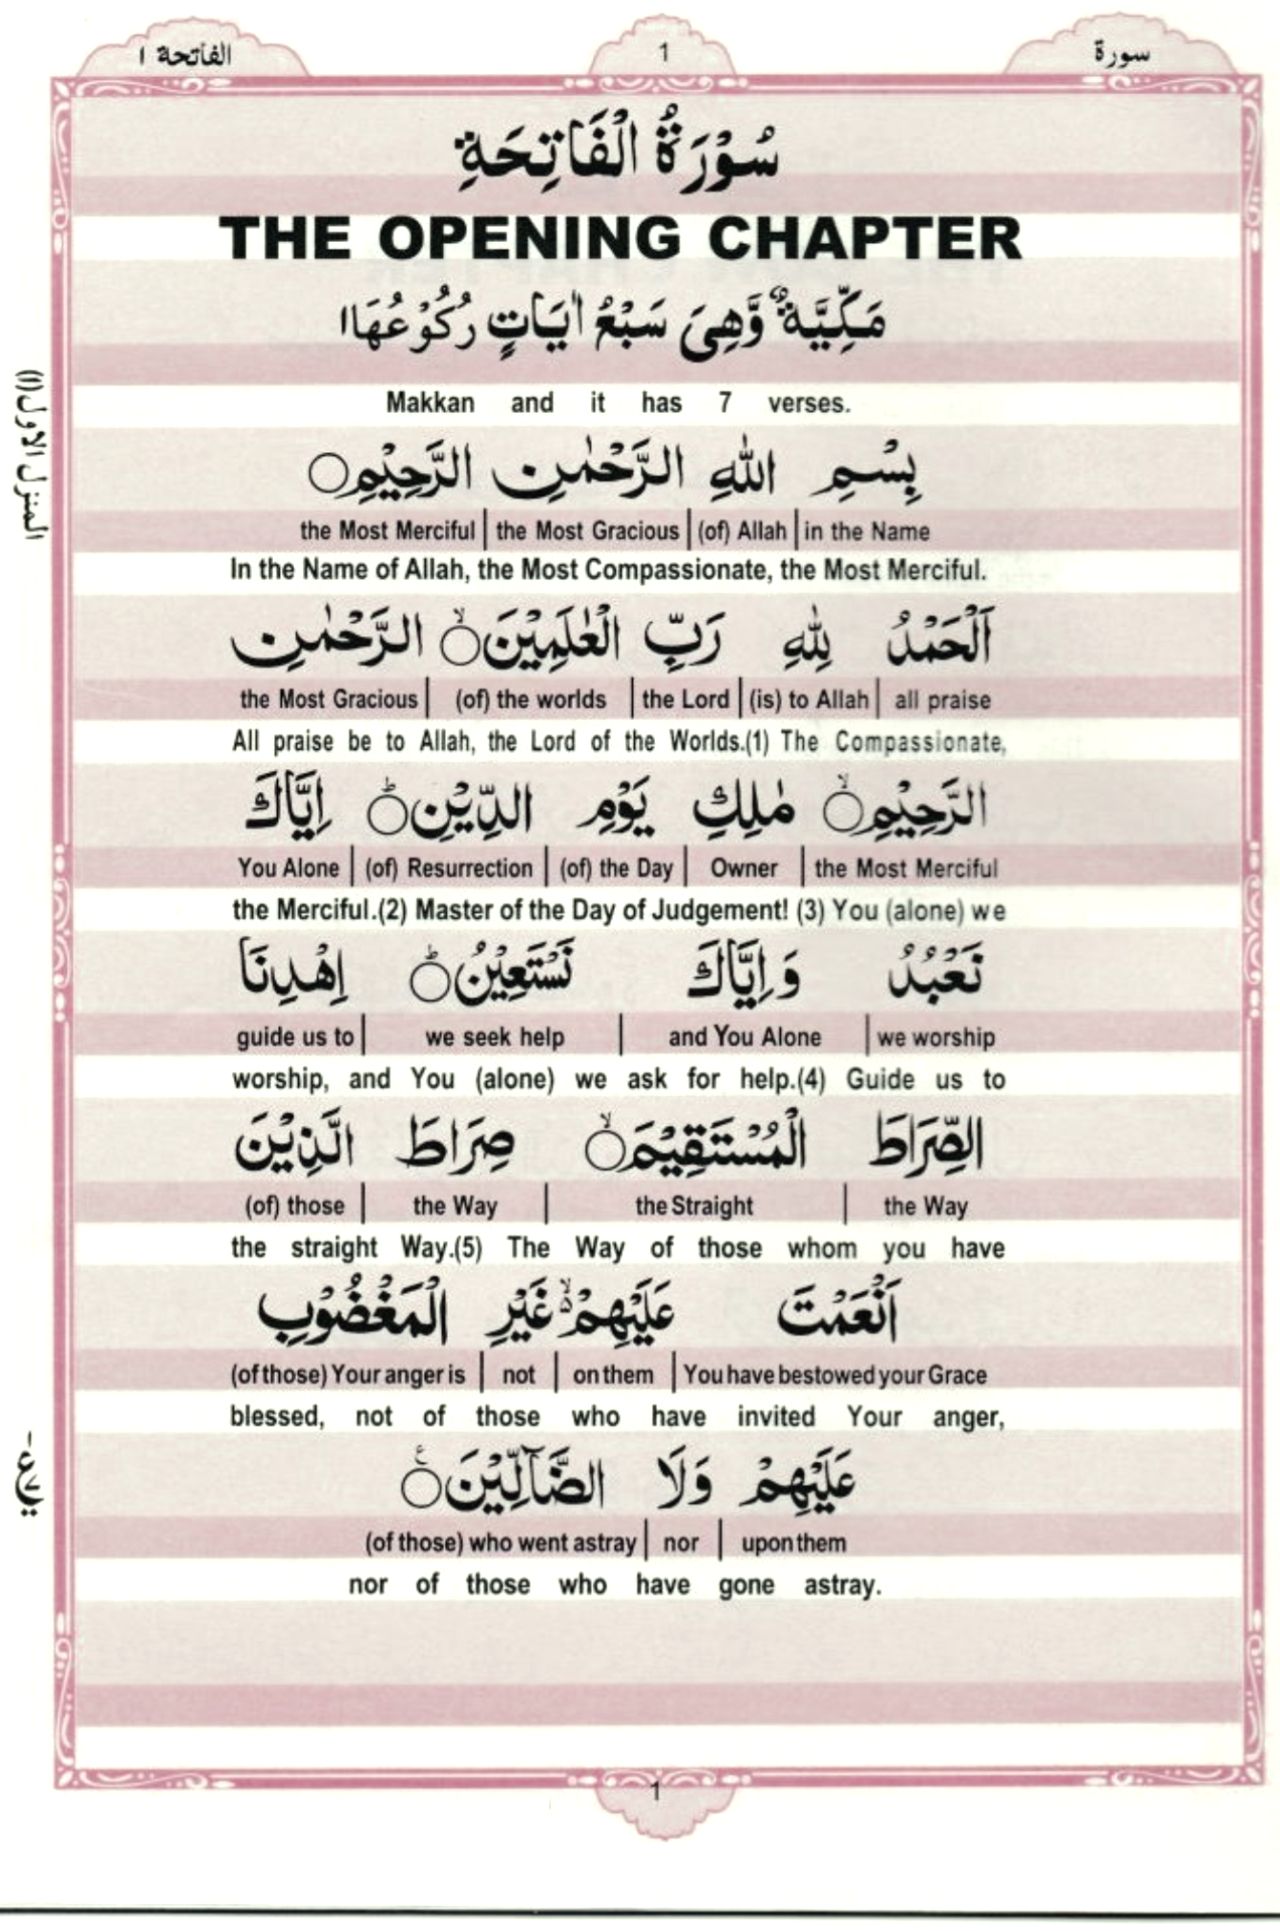 سورة
1
الفاتحة ١
سُوْرَةُ الْفَاتِحَةِ
THE OPENING CHAPTER
مَكِّيَّةٌ وَّهِىَ سَبْعُ اٰيَاتٍ رُكُوْعُهَا١
Makkan and it has 7 verses.
المنزل الاول(١)
بِسْمِ اللّٰهِ الرَّحْمٰنِ الرَّحِيْمِ○
the Most Merciful | the Most Gracious | (of) Allah | in the Name
In the Name of Allah, the Most Compassionate, the Most Merciful.
اَلْحَمْدُ لِلّٰهِ رَبِّ الْعٰلَمِيْنَ○ۙ الرَّحْمٰنِ
the Most Gracious | (of) the worlds | the Lord | (is) to Allah | all praise
All praise be to Allah, the Lord of the Worlds.(1) The Compassionate,
الرَّحِيْمِ○ۙ مٰلِكِ يَوْمِ الدِّيْنِ○ؕ اِيَّاكَ
You Alone | (of) Resurrection | (of) the Day | Owner | the Most Merciful
the Merciful.(2) Master of the Day of Judgement! (3) You (alone) we
نَعْبُدُ وَاِيَّاكَ نَسْتَعِيْنُ○ؕ اِهْدِنَا
guide us to | we seek help | and You Alone | we worship
worship, and You (alone) we ask for help.(4) Guide us to
الصِّرَاطَ الْمُسْتَقِيْمَ○ۙ صِرَاطَ الَّذِيْنَ
(of) those | the Way | the Straight | the Way
the straight Way.(5) The Way of those whom you have
اَنْعَمْتَ عَلَيْهِمْ۬ۙ غَيْرِ الْمَغْضُوْبِ
(of those) Your anger is | not | on them | You have bestowed your Grace
blessed, not of those who have invited Your anger,
عَلَيْهِمْ وَلَا الضَّآلِّيْنَ○
(of those) who went astray | nor | upon them
nor of those who have gone astray.
1